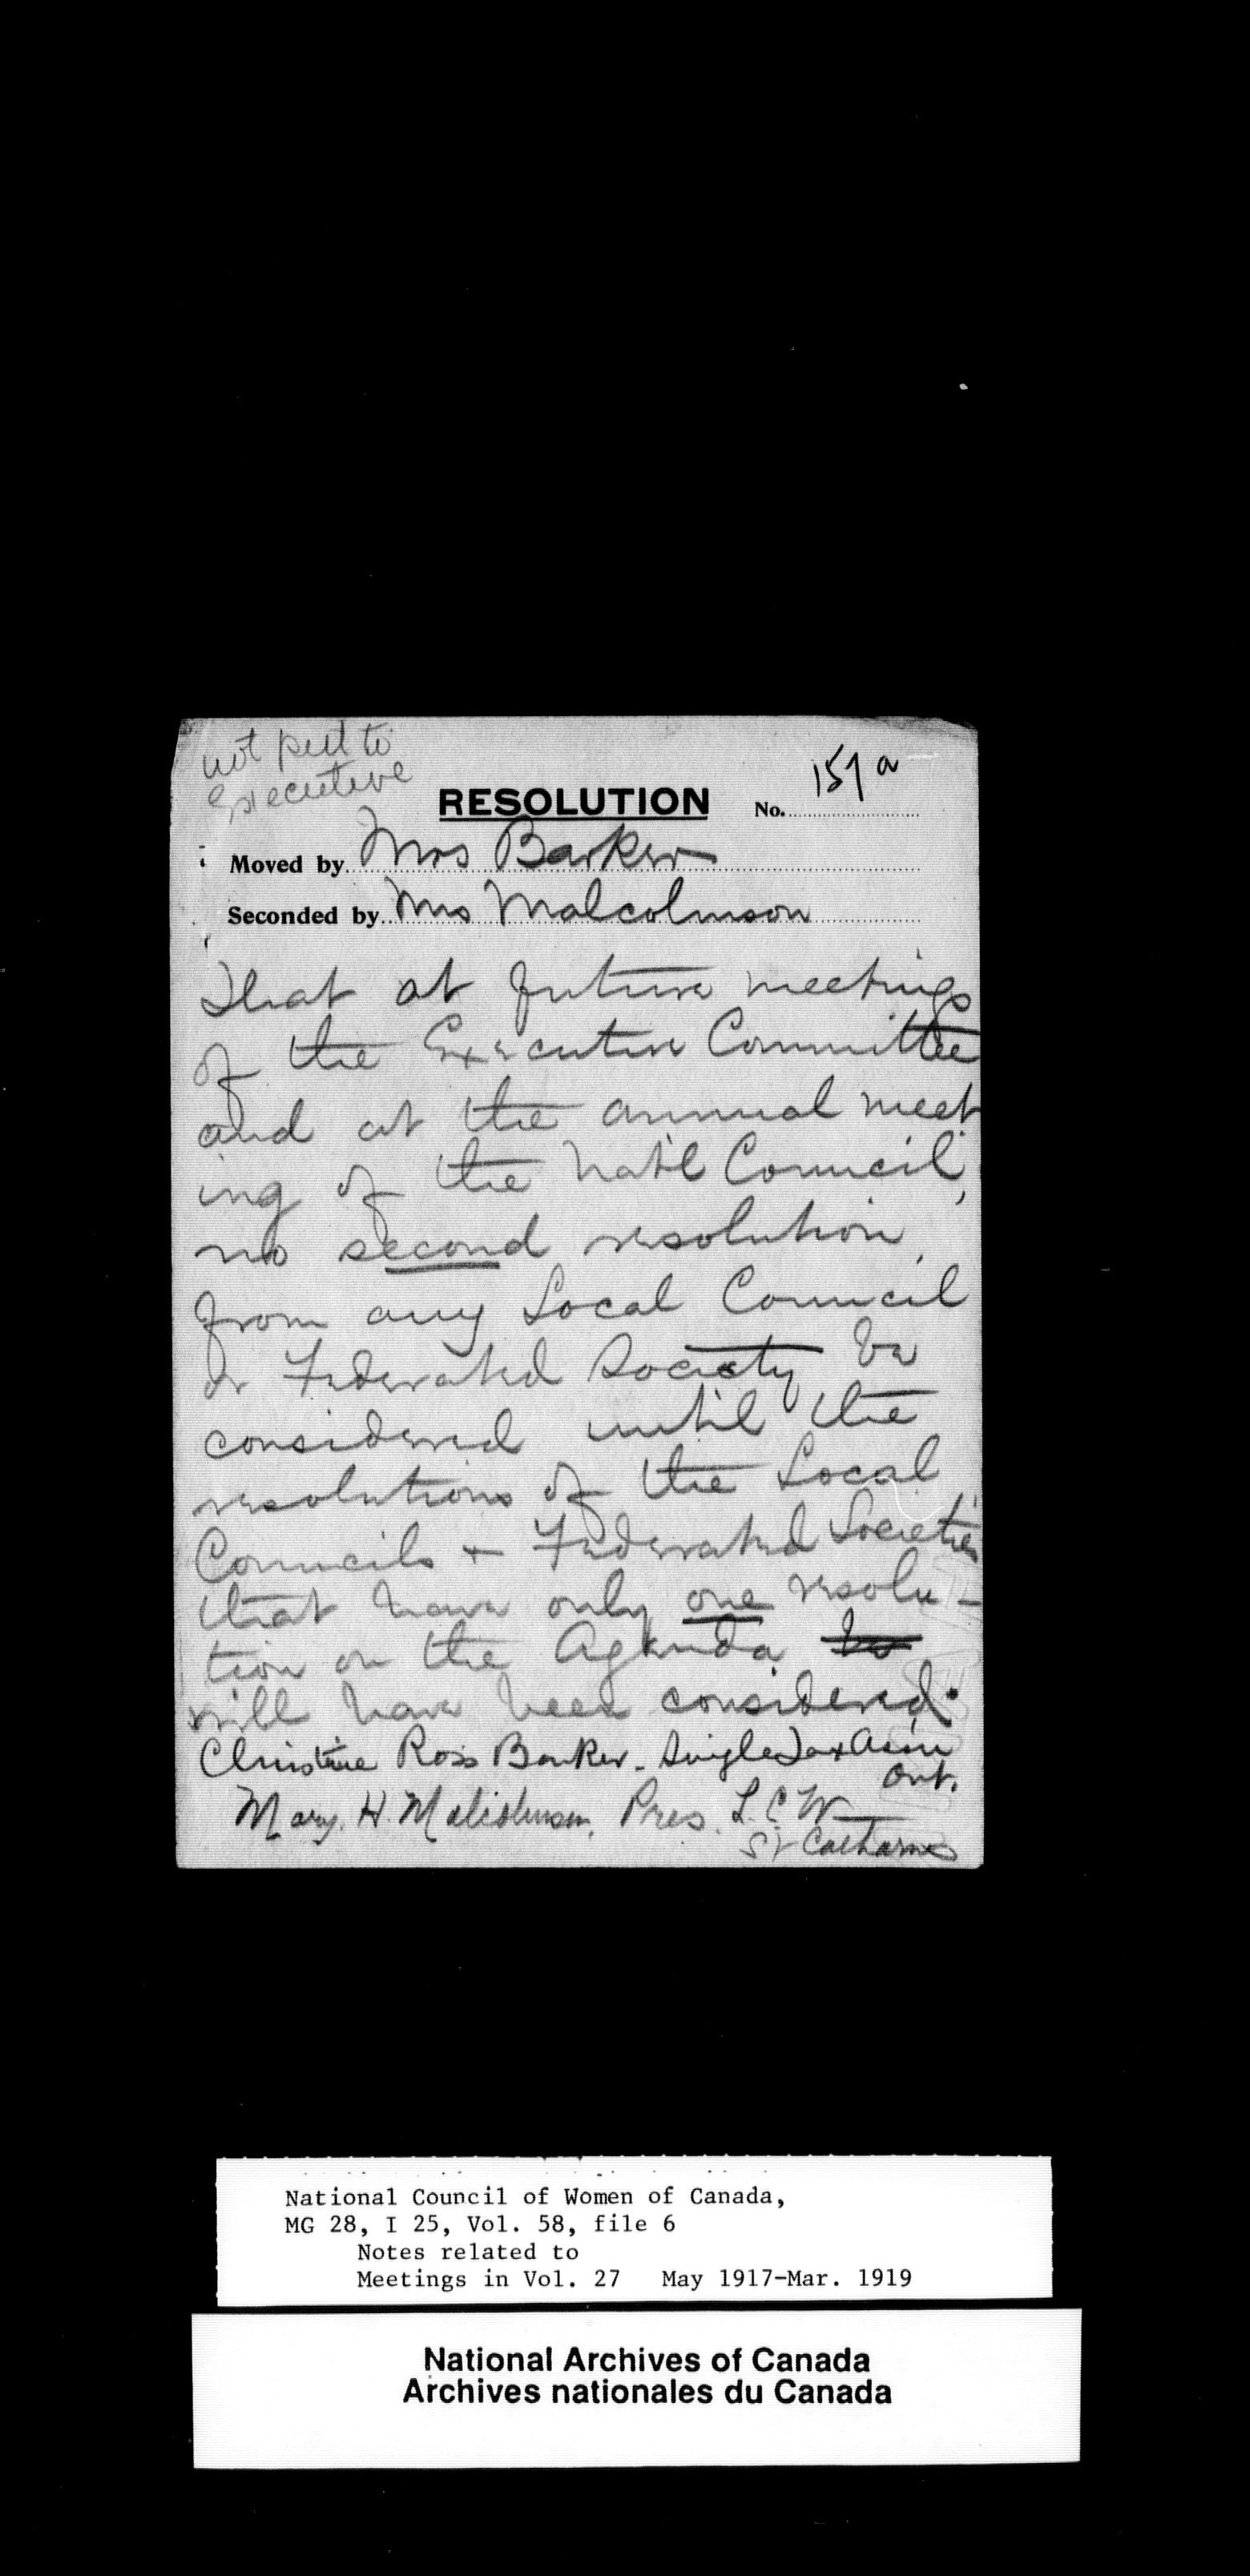 not put to
Executive
RESOLUTION No. 157a
Moved by Mrs Barker
Seconded by Mrs Malcolmson
That at future meetings
of the Executive Committee
and at the annual meet
ing of the Nat'l Council,
no second resolution,
from any Local Council
or Federated Society be
considered until the
resolutions of the Local
Councils + Federated Societies
that have only one resolu-
tion on the Agenda be
will have been considered.
Christine Ross Barker - Single Tax Ass'n
Ont.
Mary H. Malcolmson, Pres. L.C.W.
St Catharines
National Council of Women of Canada,
MG 28, I 25, Vol. 58, file 6
Notes related to
Meetings in Vol. 27 May 1917-Mar. 1919
National Archives of Canada
Archives nationales du Canada